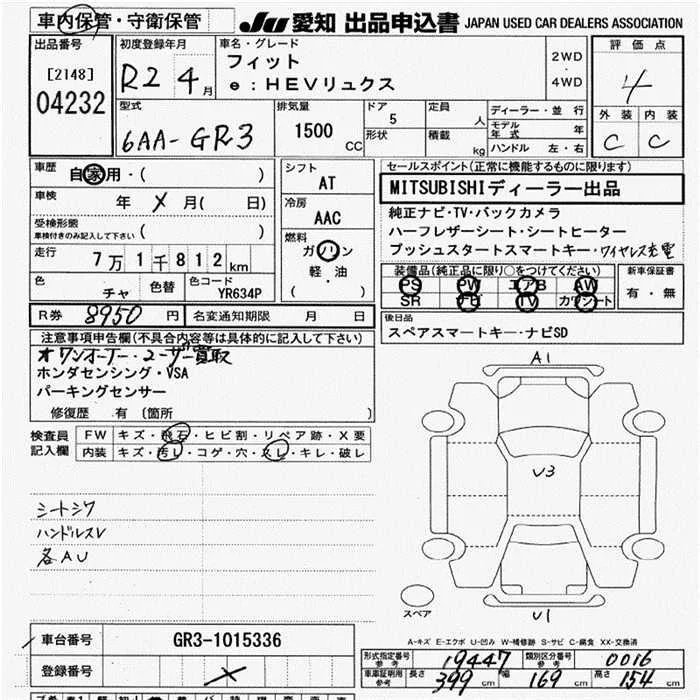 車内保管・守衛保管 JU 愛知 出品申込書 JAPAN USED CAR DEALERS ASSOCIATION
出品番号 [2148] 04232
初度登録年月 R2 4月
車名・グレード フィット e：HEVリュクス
2WD・4WD
評価点 4
外装 C 内装 C
型式 6AA-GR3
排気量 1500 CC
ドア 5 形状
定員 人 積載 kg
ディーラー・並行
モデル年式 年
ハンドル 左・右
車歴 自家用・( )
車検 年 メ 月( 日)
受検形態 車検付きのみ記入して下さい ( )
走行 7万1千812km
色 チャ 色替 色コード YR634P
シフト AT
冷房 AAC
燃料 ガソリン 軽・油 ( )
セールスポイント(正常に機能するものに限ります)
MITSUBISHIディーラー出品
純正ナビ・TV・バックカメラ
ハーフレザーシート・シートヒーター
プッシュスタートスマートキー・ワイヤレス充電
装備品(純正品に限り○をつけてください) 新車保証書
PS PW エアB AW 有・無
SR ナビ TV カワシート
R券 8950 円 名変通知期限 月 日
後日品
スペアスマートキー・ナビSD
注意事項申告欄(不具合内容等は具体的に記入して下さい)
ワンオーナー・ユーザー買取
ホンダセンシング・VSA
パーキングセンサー
修復歴 有 〔箇所 〕
検査員記入欄 FW キズ・飛石・ヒビ割・リペア跡・X要
内装 キズ・汚レ・コゲ・穴・スレ・キレ・破レ
シートシワ
ハンドルスレ
各AU
A1
U3
スペア
U1
A-キズ E-エクボ U-凹み W-補修跡 S-サビ C-腐食 XX-交換済
車台番号 GR3-1015336
登録番号
形式指定番号 参考 19447 類別区分番号 参考 0016
車庫証明用 参考 長さ 399 cm 幅 169 cm 高さ 154 cm